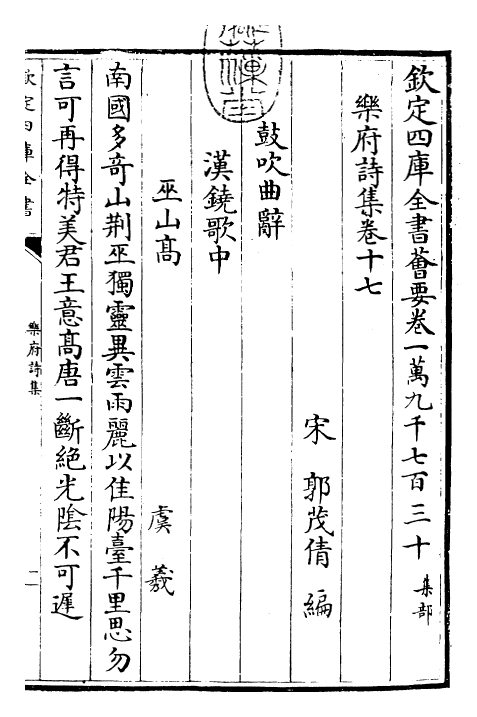 欽定四庫全書薈要卷一萬九千七百三十 集部
樂府詩集卷十七
宋 郭茂倩 編
鼓吹曲辭
漢鐃歌中
巫山髙 虞羲
南國多竒山荆巫獨靈異雲雨麗以佳陽臺千里思勿
言可再得特美君王意髙唐一斷絶光隂不可遲
欽定四庫全書
樂府詩集